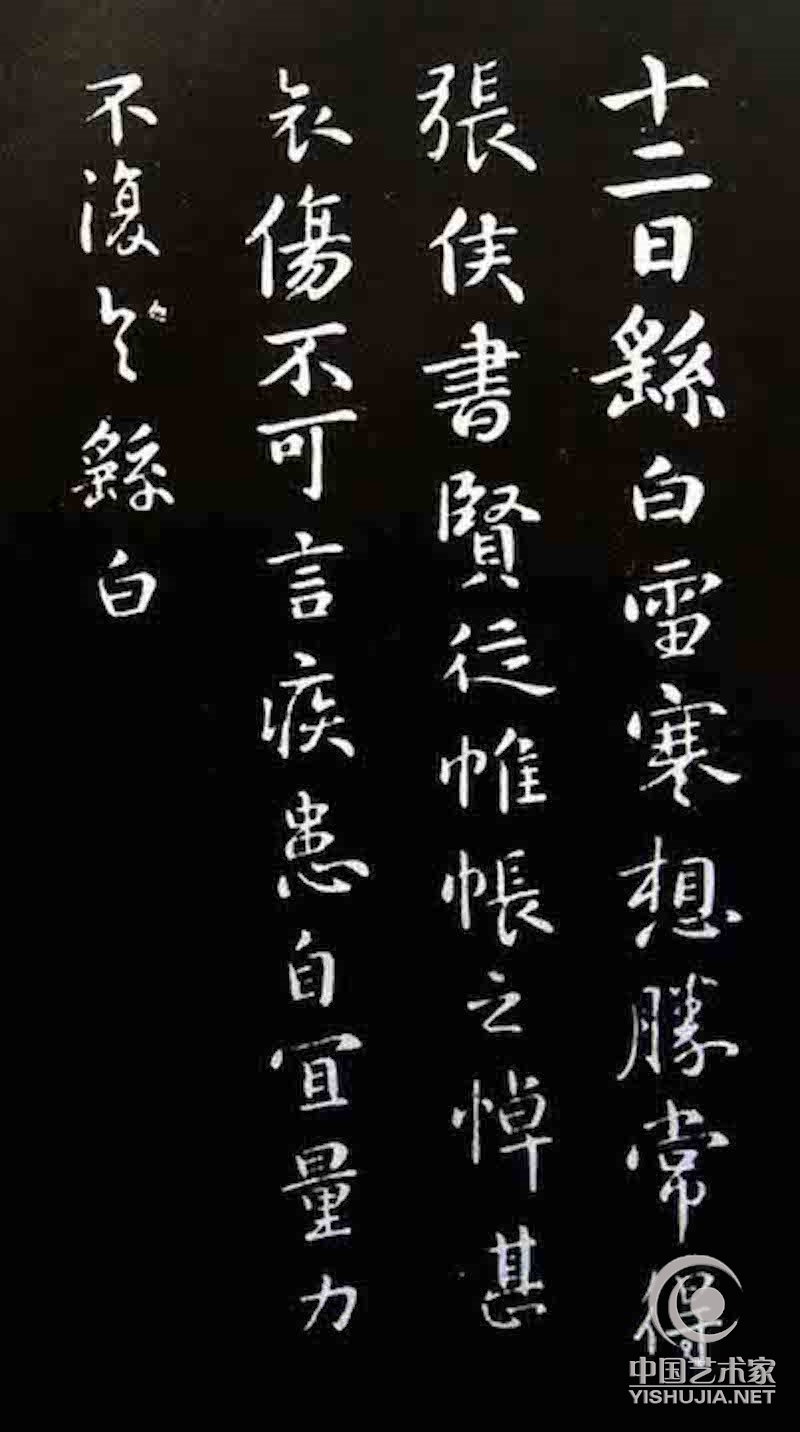 十二日繇白雪寒想勝常得
張侯書賢從帷帳之悼甚
哀傷不可言疾患自宜量力
不復具繇白
中国艺术家
YISHUJIA.NET